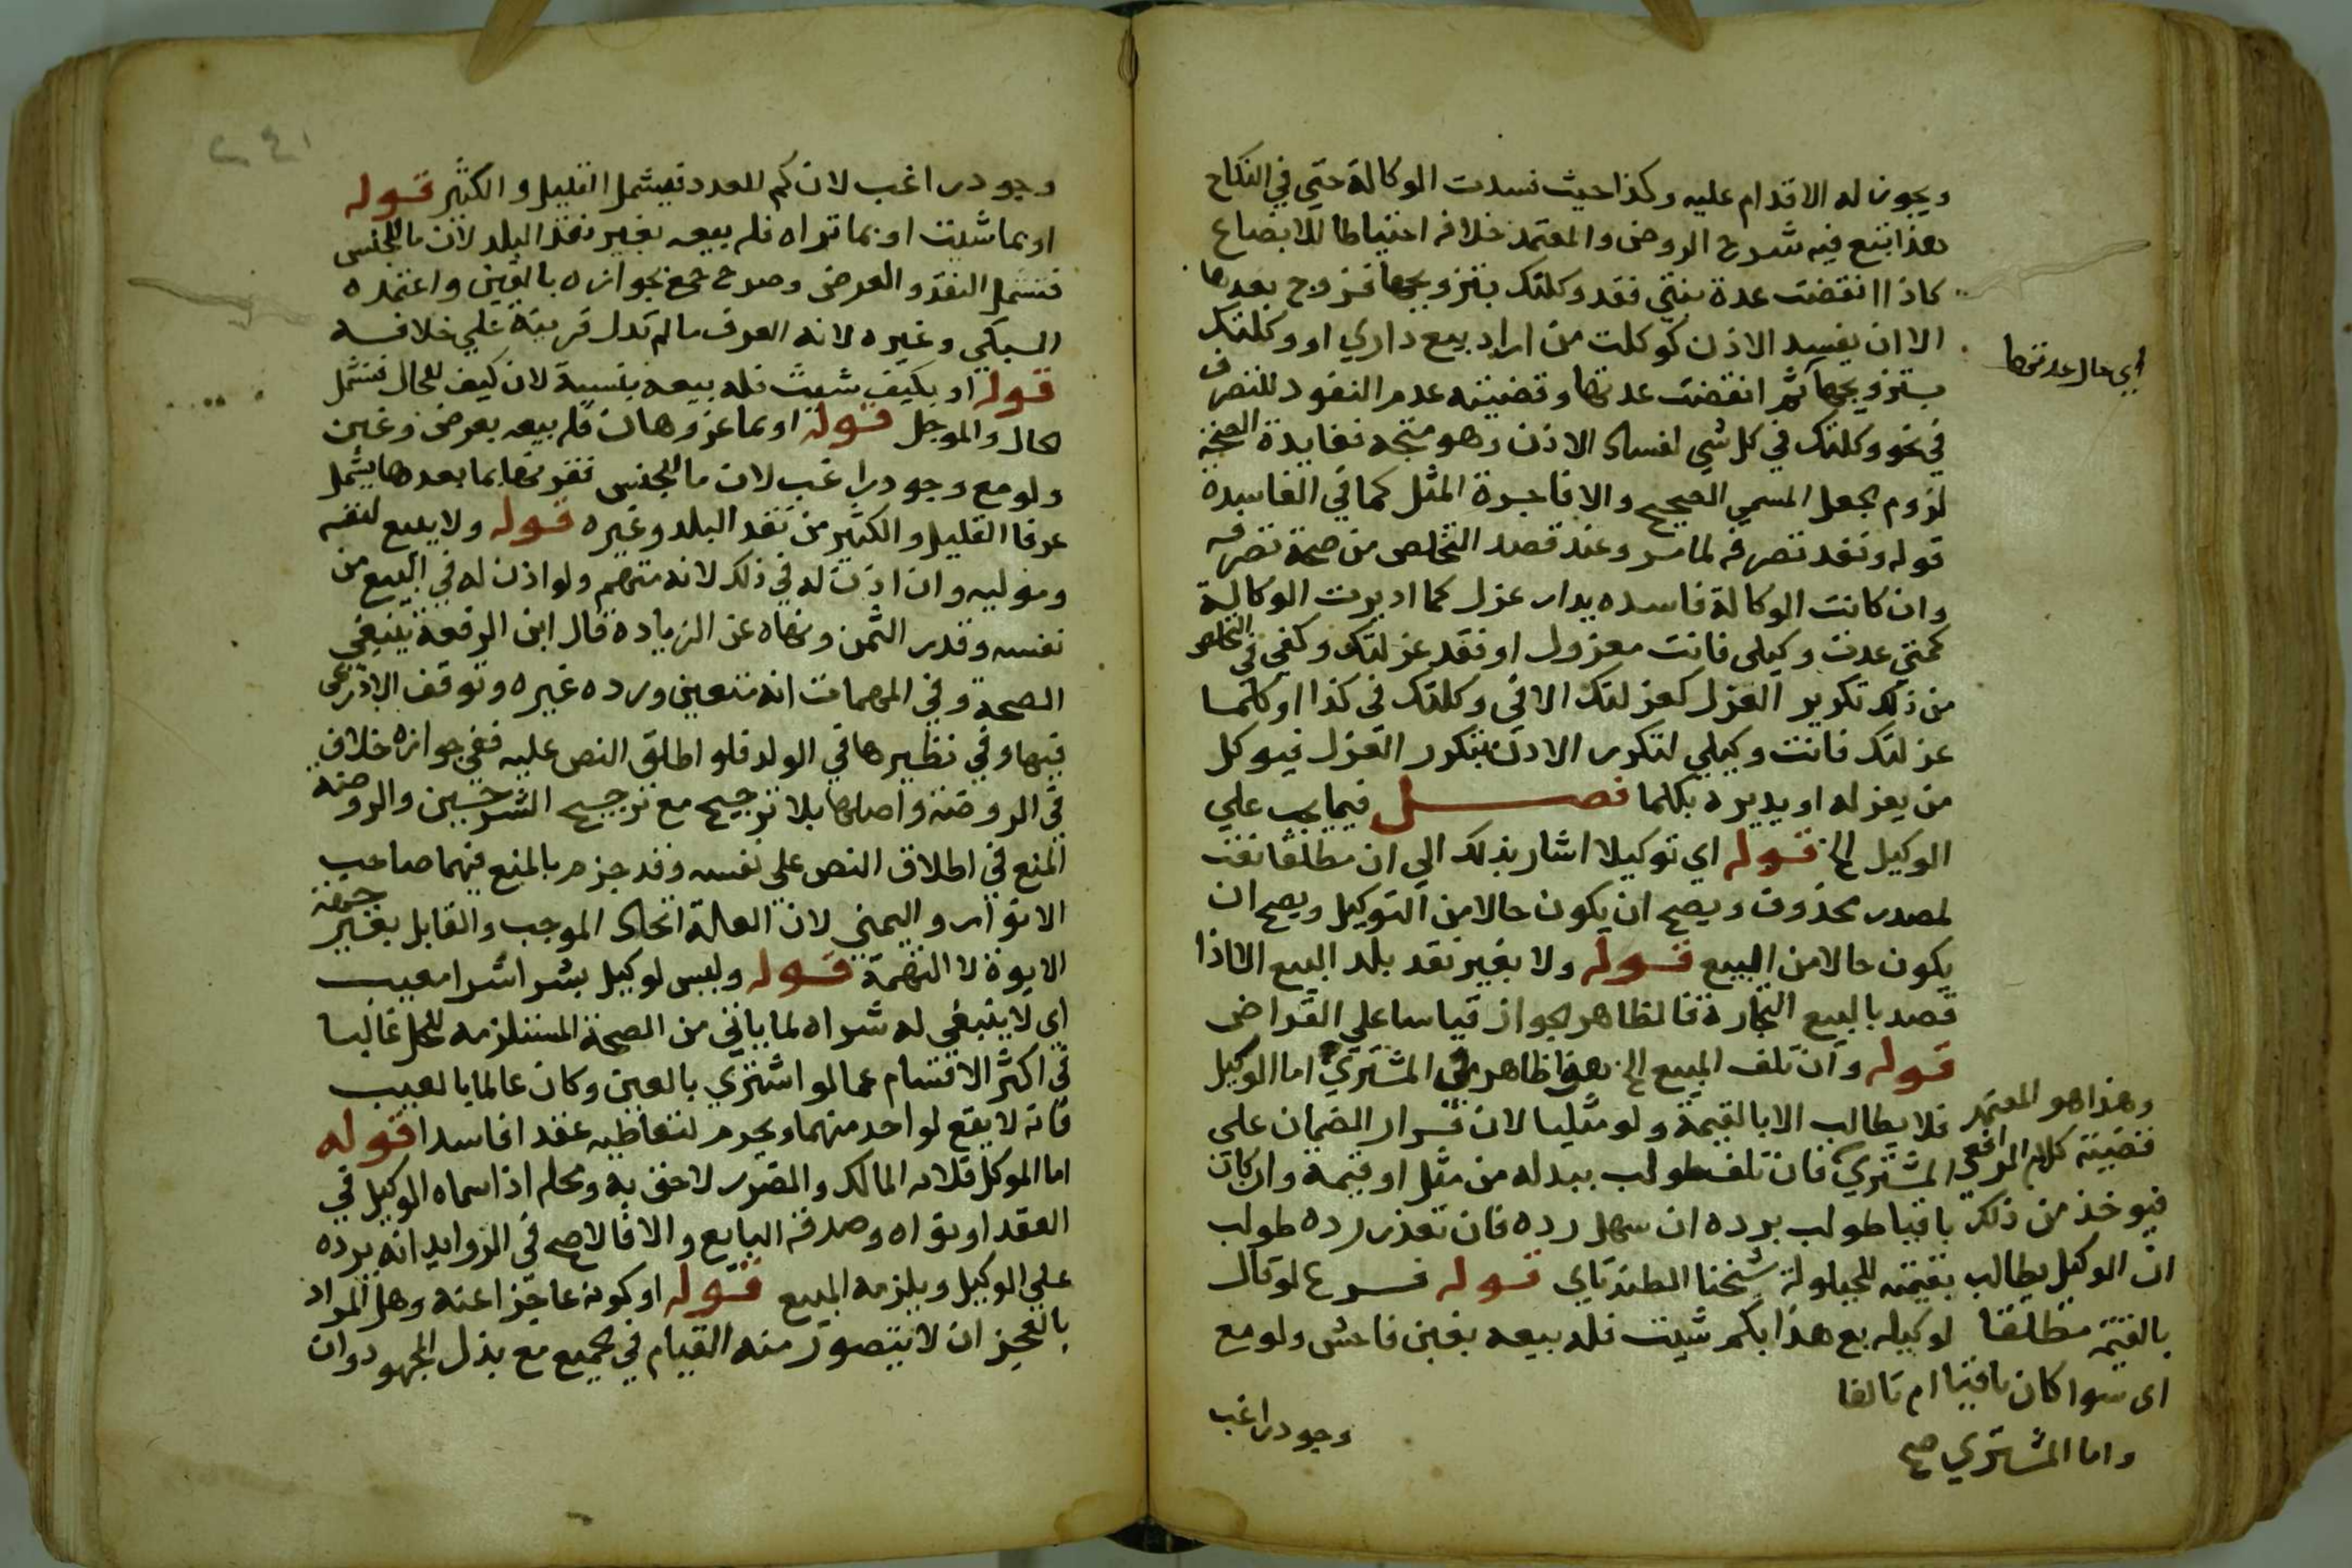 ويجوز له الاقدام عليه وكذا حيث فسدت الوكالة حتي في النكاح
هذا تبع فيه شرح الروض والمعتمد خلافه احتياطا للابضاع
كاذا انقضت عدة بنتي فقد وكلتك بتزويجها فزوج بعدها
الا ان يفسد الاذن كوكلت من اراد بيع داري او وكلتك
اي حال عدتها
بتزويجها ثم انقضت عدتها وقضيته عدم النفوذ للتصرف
في نحو وكلتك في كل شي لفساد الاذن وهو متجه ففايدة الصحة
لزوم الجعل المسمي الصحيح والا فاجرة المثل كما في الفاسدة
قوله ونفد تصرفه لما مر وعند قصد التخلص من صحة تصرفه
وان كانت الوكالة فاسده يدار عزل كما اديرت الوكالة
كمتي عدت وكيلى فانت معزول او فقد عزلتك وكفي في التخلص
من ذلك تكرير العزل كعزلتك الا في وكلتك في كذا او كلما
عزلتك فانت وكيلي لتكرر الاذن بتكرر العزل فيوكل
من يعزله او يديره بكلما فصل فيما يجب علي
الوكيل الخ قوله اي توكيلا اشار بذلك الي ان مطلقا نعت
لمصدر محذوف ويصح ان يكون حالا من التوكيل ويصح ان
يكون حالا من البيع قوله ولا بغير نقد بلد البيع الا اذا
قصد بالبيع التجارة فالظاهر الجواز قياسا علي القراض
قوله وان تلف المبيع الخ هذا ظاهر في المشتري اما الوكيل
فلا يطالب الا بالقيمة ولو مثليا لان قرار الضمان علي
المشتري فان تلف طولب ببدله من مثل او قيمة وان كان
باقيا طولب برده ان سهل رده فان تعذر رده طولب
بقيمته للحيلولة شيخنا الطندتاي قوله فرع لو قال
لوكيله بع هذا بكم شيت فله بيعه بغبن فاحش ولو مع
وهذا هو المعتمد
قضيته كلام الرافعي
فيوخذ من ذلك
ان الوكيل يطالب
بالقيمة مطلقا
اى سوا كان باقيا ام تالفا
واما المشتري صح
وجود راغب
٢٤١
وجود راغب لان كم للعدد فيشمل القليل والكثير قوله
او بما شيت او بما تراه فله بيعه بغير نقد البلد لان ما للجنس
فتشمل النقد والعرض وصرح جمع بجوازه بالغبن واعتمده
السبكي وغيره لانه العرف ما لم تدل قرينة علي خلافه
قوله او بكيف شيت فله بيعه بنسية لان كيف للحال فتشمل
الحال والموجل قوله او بما عز وهان فله بيعه بعرض وغبن
ولو مع وجود راغب لان ما للجنس فقرنها بما بعدها يشمل
عرفا القليل والكثير من نقد البلد وغيره قوله ولا يبيع لنفسه
وموليه وان اذن له في ذلك لانه متهم ولو اذن له في البيع من
نفسه وقدر الثمن ونهاه عن الزيادة قال ابن الرفعة ينبغي
الصحة وفي المهمات انه متعين ورده غيره وتوقف الاذرعي
فيها وفي نظيرها في الولد فلو اطلق النص عليه ففي جوازه خلاف
في الروضة واصلها بلا ترجيح مع ترجيح الشرحين والروضة
المنع في اطلاق النص علي نفسه وقد جزم بالمنع فيهما صاحب
الانوار واليمني لان العلة اتحاد الموجب والقابل بغير جهة
الابوة لا التهمة قوله وليس لوكيل بشرا شرا معيب
اي لا ينبغي له شراه لما ياتي من الصحة المستلزمه للحل غالبا
في اكثر الاقسام عما لو اشتري بالعين وكان عالما بالعيب
فانه لا يقع لواحد منهما ويحرم لتعاطيه عقدا فاسدا قوله
اما الموكل فلانه المالك والضرر لاحق به ومحله اذا سماه الوكيل في
العقد او نواه وصدقه البايع والا فالاصح في الزوايد انه يرده
علي الوكيل ويلزمه المبيع قوله او كونه عاجزا عنه وهل المراد
بالعجز ان لا يتصور منه القيام في الجميع مع بذل المجهود وان